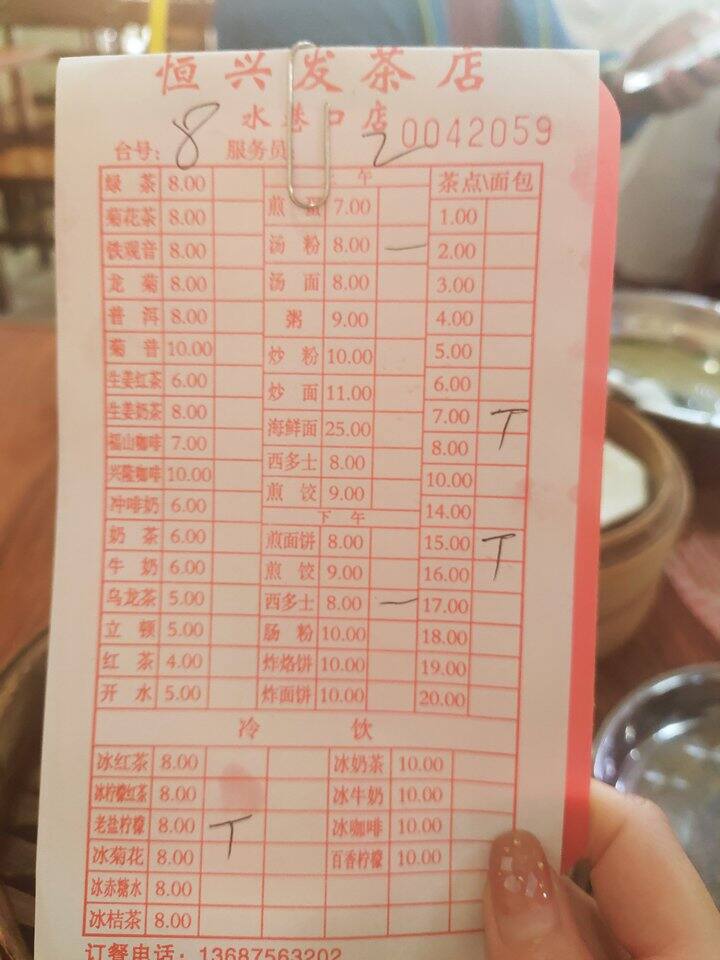 恒兴发茶店
水巷口店 0042059
台号: 8 服务员 2
绿茶 8.00 午 茶点\面包
菊花茶 8.00 煎蛋 7.00 1.00
铁观音 8.00 汤粉 8.00 一 2.00
龙菊 8.00 汤面 8.00 3.00
普洱 8.00 粥 9.00 4.00
菊普 10.00 炒粉 10.00 5.00
生姜红茶 6.00 炒面 11.00 6.00
生姜奶茶 8.00 海鲜面 25.00 7.00 T
福山咖啡 7.00 西多士 8.00 8.00
兴隆咖啡 10.00 煎饺 9.00 10.00
冲啡奶 6.00 下午 14.00
奶茶 6.00 煎面饼 8.00 15.00 T
牛奶 6.00 煎饺 9.00 16.00
乌龙茶 5.00 西多士 8.00 一 17.00
立顿 5.00 肠粉 10.00 18.00
红茶 4.00 炸烙饼 10.00 19.00
开水 5.00 炸面饼 10.00 20.00
冷饮
冰红茶 8.00 冰奶茶 10.00
冰柠檬红茶 8.00 冰牛奶 10.00
老盐柠檬 8.00 T 冰咖啡 10.00
冰菊花 8.00 百香柠檬 10.00
冰赤糖水 8.00
冰桔茶 8.00
订餐电话: 13687563202